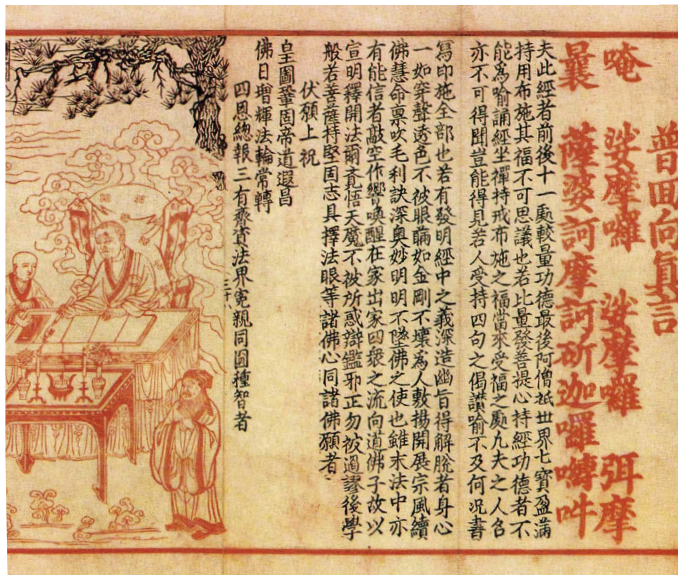 普回向真言
唵 娑摩囉 娑摩囉 弭摩
曩 薩婆訶摩訶斫迦囉嚩吽
夫此經者前後十一處較量功德最後阿僧祇世界七寶盈滿
持用布施其福不可思議也若比量發菩提心持經功德者不
能為喻誦經坐禪持戒布施之福當來受福之處凡夫之人名
亦不可得聞豈能得見若人受持四句之偈讚喻不及何況書
寫印施全部也若有發明經中之義深造幽旨得解脫者身心
一如穿聲透色不被眼瞞如金剛不壞為人敷揚開展宗風續
佛慧命稟吹毛利訣深奧妙明明不墜佛之使也雖末法中亦
有能信者敲空作響喚醒在家出家四眾之流向道佛子故以
宣明釋開法爾竟悟天魔不被所惑辯鑑邪正勿被過謾後學
般若菩薩持堅固志具擇法眼等諸佛心同諸佛願者
伏願上祝
皇圖鞏固帝道遐昌
佛日增輝法輪常轉
四恩總報三有齊資法界冤親同圓種智者
三十八